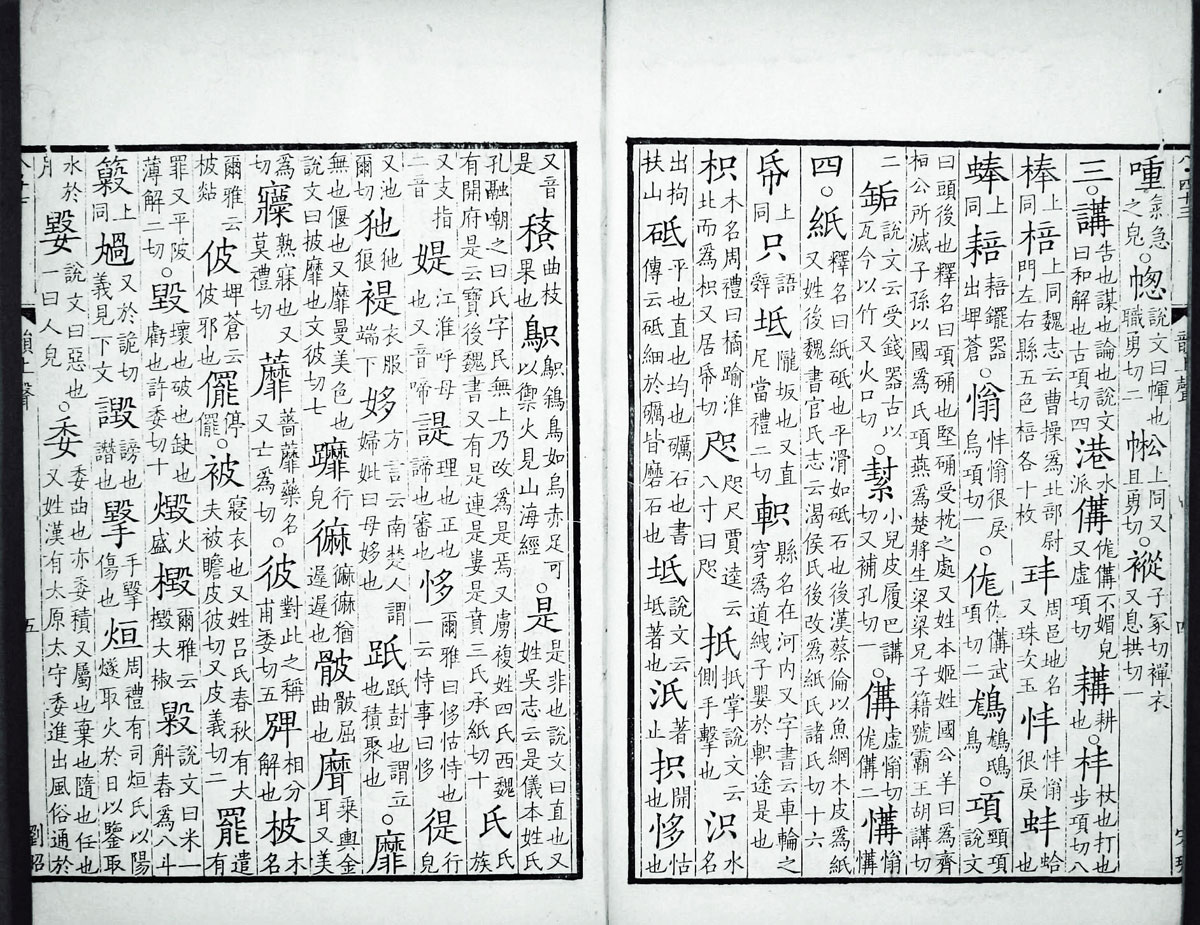 喠氣急之皃。幒說文曰幝也職勇切二㡆上同又且勇切。襹子冢切襌衣又息拱切一
三。講告也謀也論也說文曰和解也古項切四港水派傋㑁傋不媚皃又虛項切耩耕也。𣏾杖也打也步項切八
棒上同棓上同魏志云曹操爲北部尉門左右縣五色棓各十枚玤周邑地名又珠次玉𢗏𢗏㥶很戾蚌蛤也
蜯上同䎧䎧䥯器出埤蒼。㥶𢗏㥶很戾烏項切一。㑁㑁傋武項切二鴋鴋鴟鳥。項頸項說文
曰頭後也釋名曰項确也堅确受枕之處又姓本姬姓國公羊曰爲齊桓公所滅子孫以國爲氏項燕爲楚將生梁梁兄子籍號霸王胡講切
二缿說文云受錢器古以瓦今以竹又火口切。㓼小兒皮履巴講切又補孔切一。傋虛㥶切㑁傋二㦢㦢
四。紙釋名曰紙砥也平滑如砥石也後漢蔡倫以魚網木皮爲紙又姓後魏書官氏志云渴侯氏後改爲紙氏諸氏切十六
帋上同只語辤坻隴坂也又直尼當禮二切軹縣名在河内又字書云車輪之穿爲道綫子嬰於軹途是也
枳木名周禮曰橘踰淮北而爲枳又居帋切咫咫尺賈逵云八寸曰咫抵抵掌說文云側手擊也汦水名
出拘扶山砥平也直也均也礪石也書傳云砥細於礪皆磨石也坁坁著也說文云著止汦著止抧開也㤲怙也
又音是積曲枝果也鴃鴃鵨鳥如烏赤足可以禦火見山海經。是是非也說文曰直也又姓吳志云是儀本姓氏
孔融嘲之曰氏字民無上乃改爲是焉又虜複姓四氏西魏有開府是云寶後魏書又有是連是婁是賁三氏承紙切十氏族
又支指二音媞江淮呼母也又音啼諟理也正也諦也審也恀爾雅曰恀怙恃也一云恃事曰恀徥行皃
又池爾切狏狏狼禔衣服端下姼方言云南楚人謂婦妣曰母姼也𧿶𧿶㩻也謂立積聚也。靡
無也偃也又靡曼美色也說文曰披靡也文彼切七躪行皃𢕰𢕰𢕰猶遲遲也骳骳屈曲也䃺乘輿金耳又美
爲切䊳熟寐也又莫禮切蘼薔蘼藥名又亡爲切。彼對此之稱甫委切五䏶相分解也柀木名
爾雅云柀㸃佊埤蒼云佊邪也㒧停㒧。被寢衣也又姓呂氏春秋有大夫被瞻皮彼切又皮義切二罷遣有
罪又平陂薄解二切。毀壞也破也缺也虧也許委切十燬火盛檓爾雅云檓大椒毇說文曰米一斛舂爲八斗
𥽦上同㜇又於詭切義見下文譭謗也譖也擊手擊傷也烜周禮有司烜氏以陽燧取火於日以鑒取
水於月嫛說文曰惡也一曰人皃。委委曲也亦委積又屬也棄也隨也任也又姓漢有太原太守委進出風俗通於